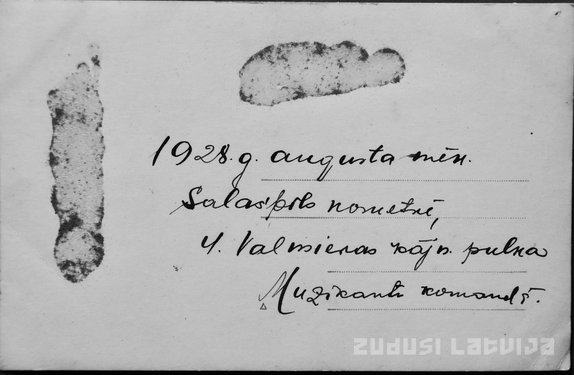 1928. g. augusta mēn.
Salaspils nometnē,
4. Valmieras kājn. pulka
Muzikantu komandā.
ZUDUSI LATVIJA